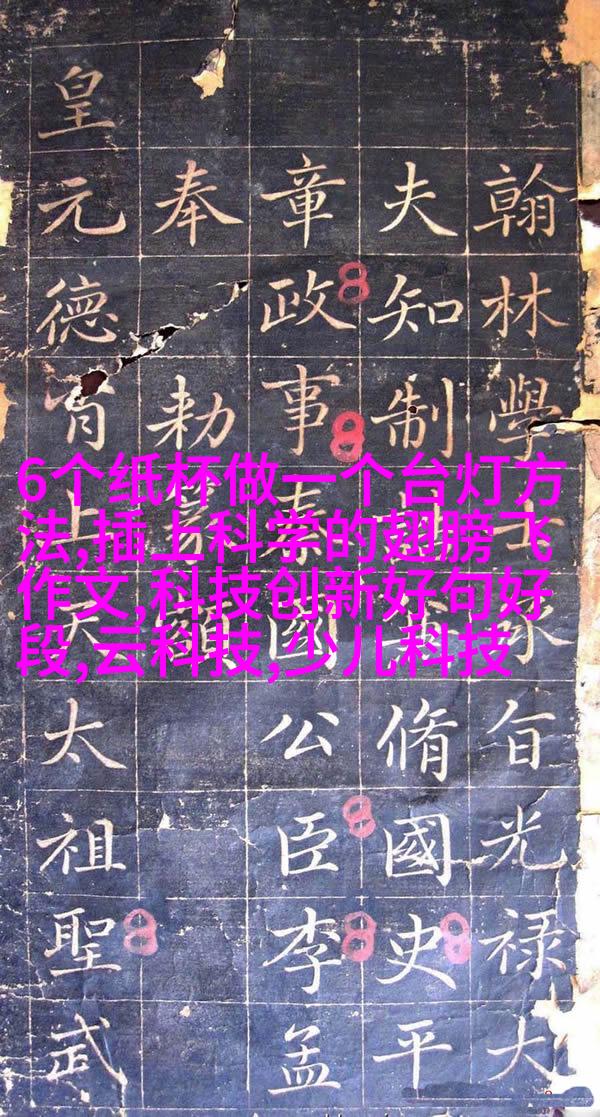 6个纸杯做一个台灯方
法,插上科学的翅膀飞
作文,科技创新好句好
段,云科技,少儿科技
翰林學士承旨光禄大
夫知制兼脩國史平
章政事秦國公臣李孟
奉勅篆額
皇元德肖上天太祖聖武